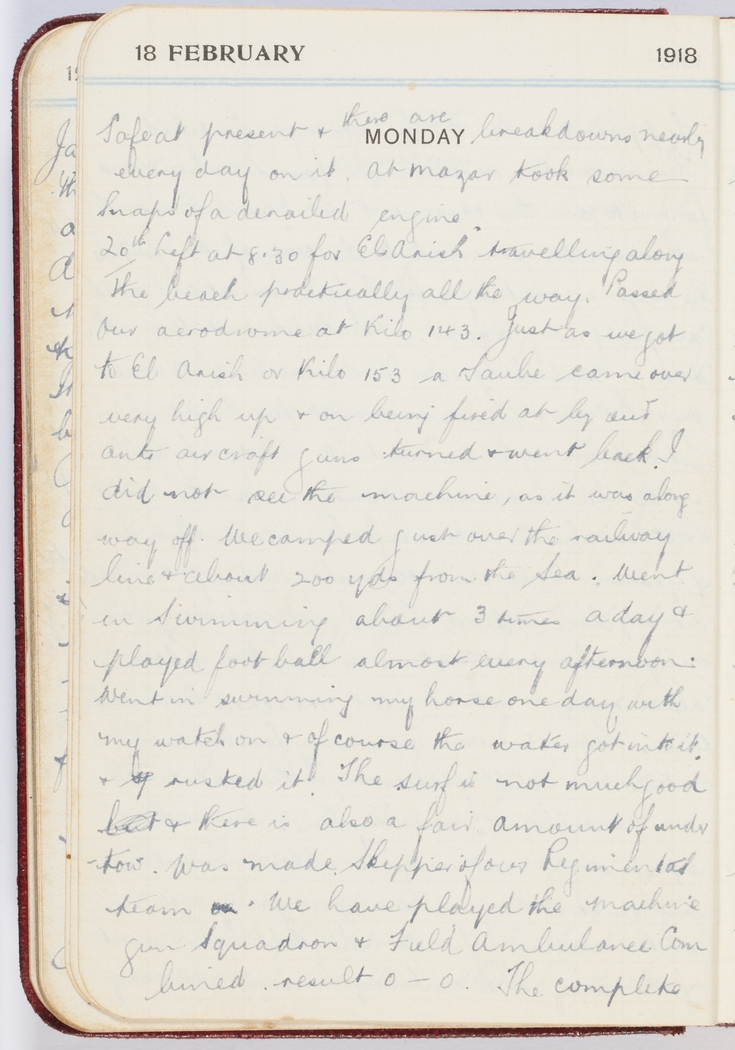 18 FEBRUARY 1918
MONDAY
Safe at present & there are breakdowns nearly
every day on it. At Mazar took some
snaps of a derailed engine
20th Left at 8.30 for El Arish travelling along
the beach practically all the way. Passed
our aerodrome at Kilo 143. Just as we got
to El Arish or Kilo 153 a Taube came over
very high up & on being fired at by our
anti aircraft guns turned & went back. I
did not see the machine, as it was a long
way off. We camped just over the railway
line & about 200 yds from the Sea. Went
in Swimming about 3 times a day &
played foot ball almost every afternoon.
Went in swimming my horse one day with
my watch on & of course the water got into it
& rusted it. The surf is not much good
but & there is also a fair amount of under
-tow. Was made Skipper of our Regimental
team. We have played the machine
gun Squadron & Field Ambulance Com
bined. result 0 – 0. The complete